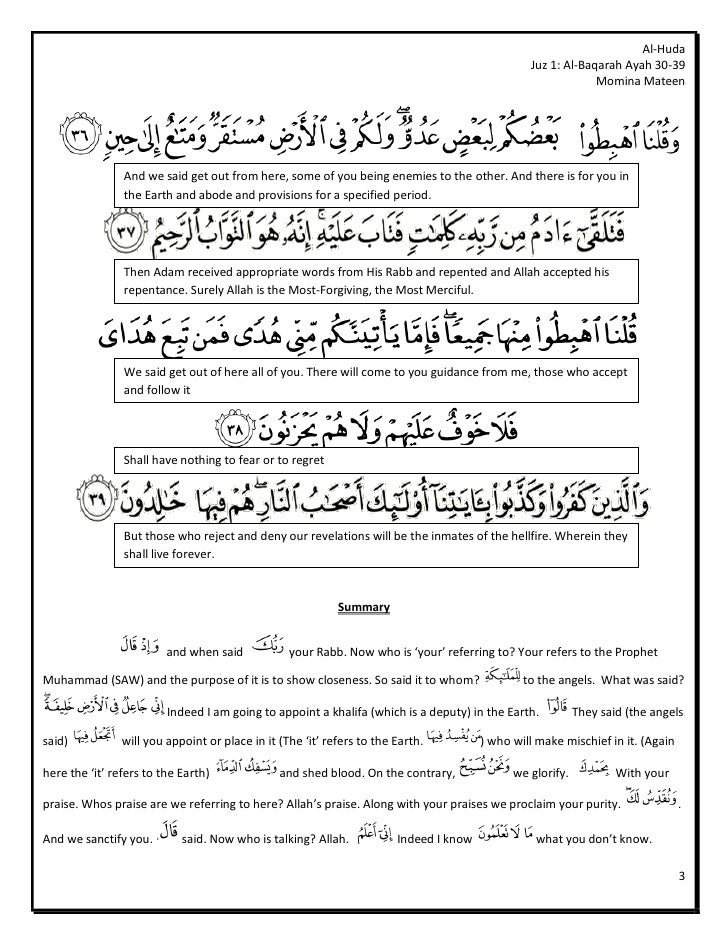 Al-Huda
Juz 1: Al-Baqarah Ayah 30-39
Momina Mateen
وَقُلْنَا ٱهْبِطُوا۟ بَعْضُكُمْ لِبَعْضٍ عَدُوٌّ ۖ وَلَكُمْ فِى ٱلْأَرْضِ مُسْتَقَرٌّ وَمَتَـٰعٌ إِلَىٰ حِينٍ ٣٦
And we said get out from here, some of you being enemies to the other. And there is for you in
the Earth and abode and provisions for a specified period.
فَتَلَقَّىٰٓ ءَادَمُ مِن رَّبِّهِۦ كَلِمَـٰتٍ فَتَابَ عَلَيْهِ ۚ إِنَّهُۥ هُوَ ٱلتَّوَّابُ ٱلرَّحِيمُ ٣٧
Then Adam received appropriate words from His Rabb and repented and Allah accepted his
repentance. Surely Allah is the Most-Forgiving, the Most Merciful.
قُلْنَا ٱهْبِطُوا۟ مِنْهَا جَمِيعًا ۖ فَإِمَّا يَأْتِيَنَّكُم مِّنِّى هُدًى فَمَن تَبِعَ هُدَاىَ
We said get out of here all of you. There will come to you guidance from me, those who accept
and follow it
فَلَا خَوْفٌ عَلَيْهِمْ وَلَا هُمْ يَحْزَنُونَ ٣٨
Shall have nothing to fear or to regret
وَٱلَّذِينَ كَفَرُوا۟ وَكَذَّبُوا۟ بِـَٔايَـٰتِنَآ أُو۟لَـٰٓئِكَ أَصْحَـٰبُ ٱلنَّارِ ۖ هُمْ فِيهَا خَـٰلِدُونَ ٣٩
But those who reject and deny our revelations will be the inmates of the hellfire. Wherein they
shall live forever.
Summary
وَإِذْ قَالَ and when said رَبُّكَ your Rabb. Now who is ‘your’ referring to? Your refers to the Prophet
Muhammad (SAW) and the purpose of it is to show closeness. So said it to whom? لِلْمَلَـٰٓئِكَةِ to the angels. What was said?
إِنِّى جَاعِلٌ فِى ٱلْأَرْضِ خَلِيفَةً ۖ Indeed I am going to appoint a khalifa (which is a deputy) in the Earth. قَالُوٓا۟ They said (the angels
said) أَتَجْعَلُ فِيهَا will you appoint or place in it (The ‘it’ refers to the Earth. مَن يُفْسِدُ فِيهَا) who will make mischief in it. (Again
here the ‘it’ refers to the Earth) وَيَسْفِكُ ٱلدِّمَآءَ and shed blood. On the contrary, وَنَحْنُ نُسَبِّحُ we glorify. بِحَمْدِكَ With your
praise. Whos praise are we referring to here? Allah’s praise. Along with your praises we proclaim your purity. وَنُقَدِّسُ لَكَ ۖ .
And we sanctify you. قَالَ said. Now who is talking? Allah. إِنِّىٓ أَعْلَمُ Indeed I know مَا لَا تَعْلَمُونَ what you don’t know.
3